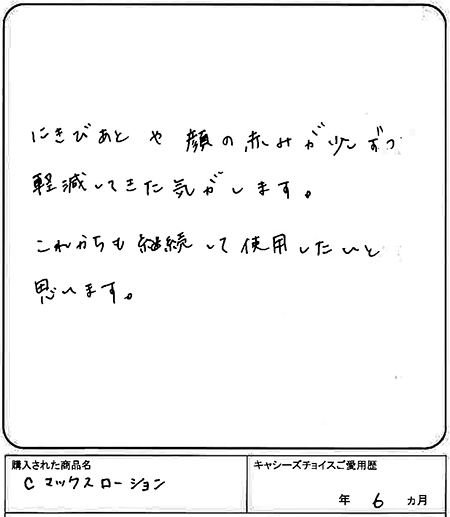 にきびあと や 顔の赤みが少しずつ
軽減してきた気がします。
これからも継続して使用したいと
思います。
購入された商品名
C マックスローション
キャシーズチョイスご愛用歴
年 6 ヵ月